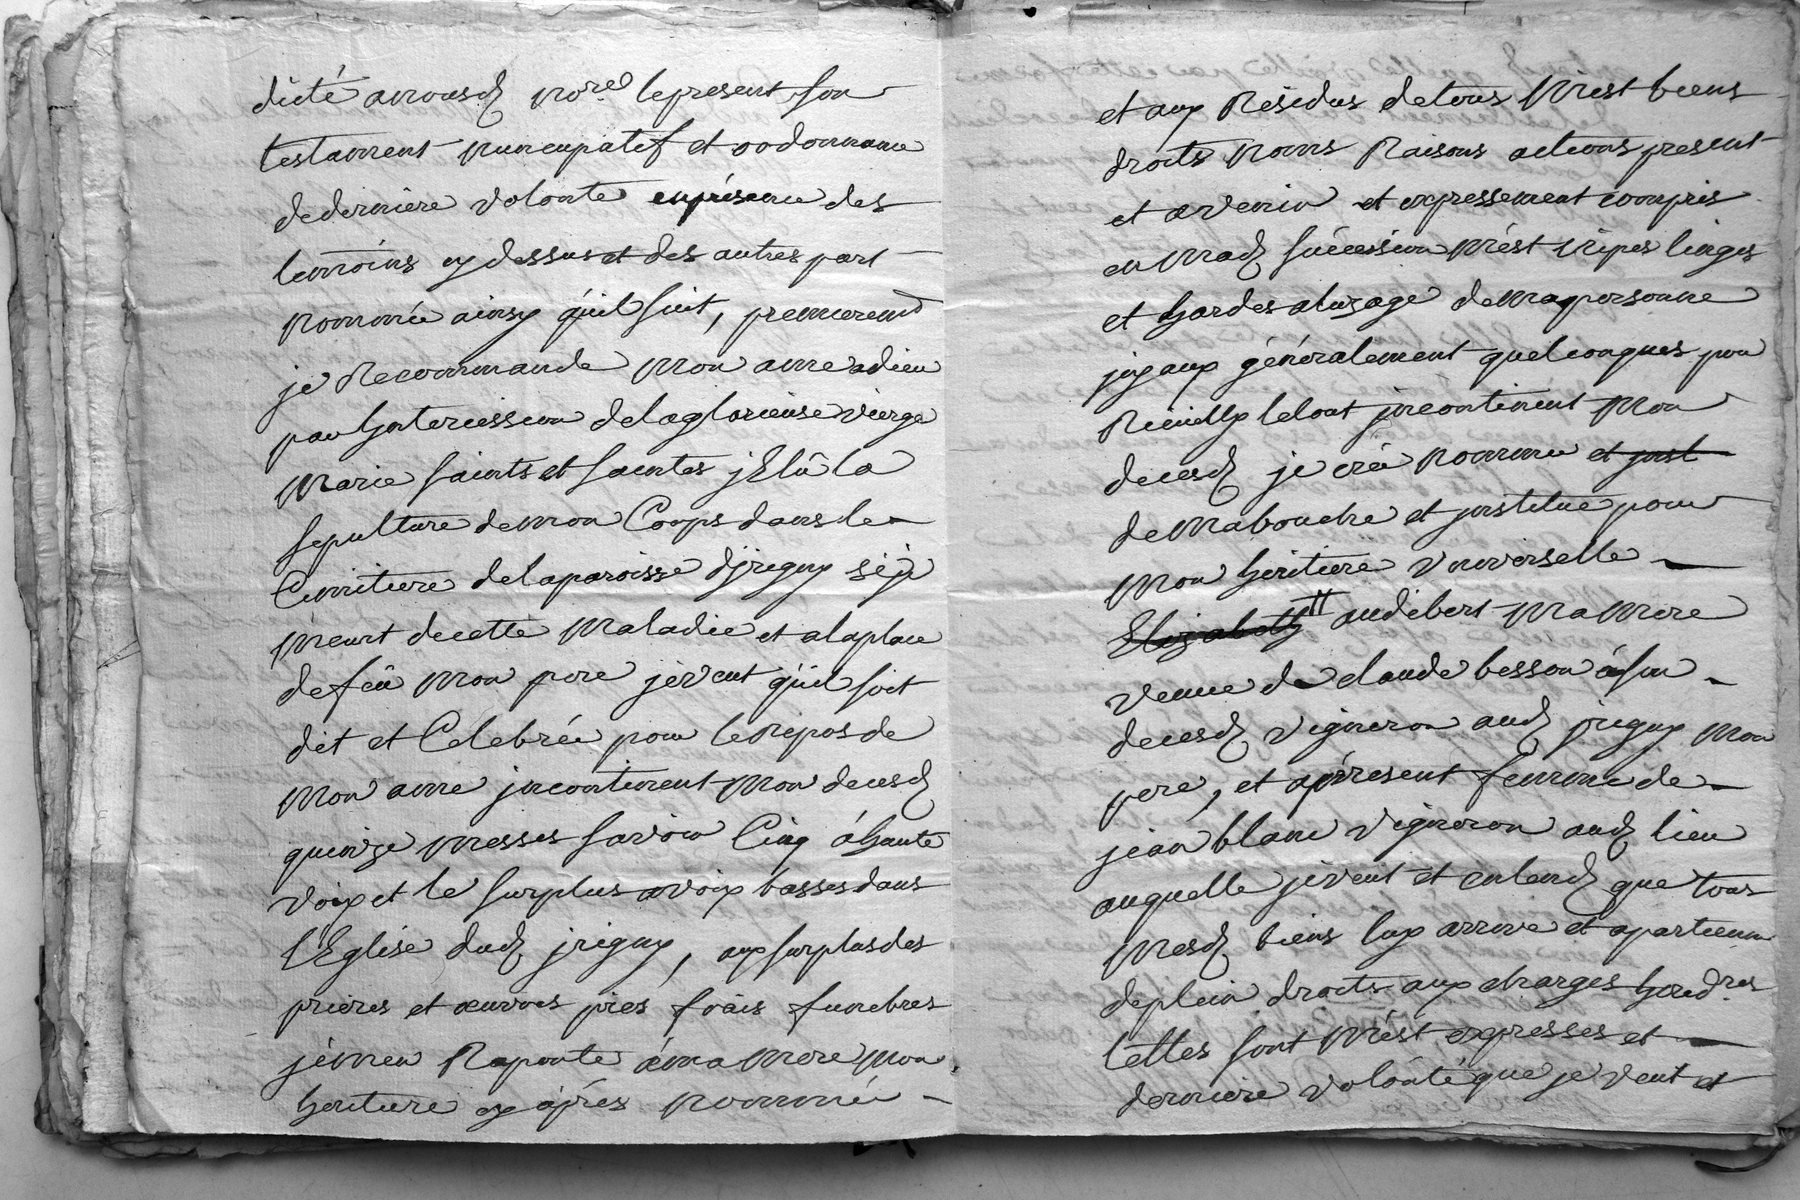 dicté anousd nore lepresent son
testament nuncupatif et ordonnance
dederniere volonté enprésence des
temoins cy dessus et des autres part
nommée ainsy qúil suit, premierement
je Recommande mon ame adieu
par Lintercission delaglorieuse vierge
Marie saints et saintes jElû la
sepulture demon Corps dans le
Cimitiere delaparoisse djrigny sy je
meurt decette maladie et alaplace
defeü mon pere jeveut qúil soit
dit et Celebrée pour lerepos de
mon ame jncontinent mon decesd
quinze messes savoir Cinq áhaute
voix et le surplus avoix basses dans
lEglise dud jrigny, aux surplus des
prieres et œuvres pies frais funebres
jemen Raporte áma mere mon
heritiere cy áprés nommée
et aux Résidus detous mest biens
droits noms Raisons actions present
et avenir et expressement compris
en mad súccession mést nipes linges
et hardes alusage demapersonne
joyaux généralement quelconques pour
Recüellÿ letout jncontinent mon
decesd je crée nomme et jnst
demabouche et jnstitue pour
mon héritiere universelle
Elizabeth audibert ma mere
veuve de claude besson áson
decesd vigneron aud jrigny mon
pere, et aprésent femme de
jean blanc vigneron aud lieu
auquelle jeveut et entend que tous
mesd biens luy arrive et apartienne
deplein droits aux charges heredres
telles sont mést expresses et
derniere volonté que je veut et